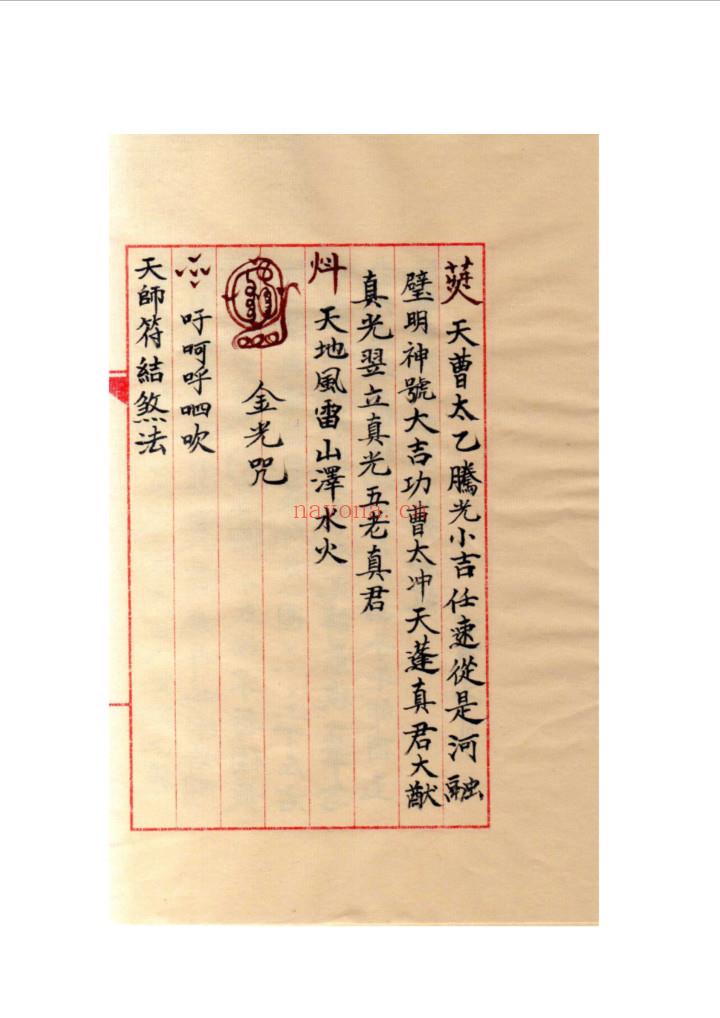 天曹太乙騰光小吉任速從是河融
璧明神號大吉功曹太冲天蓬真君大猷
真光翌立真光五老真君
炓 天地風雷山澤水火
金光咒
吁呵呼呬吹
天師符結煞法
nayona.cn